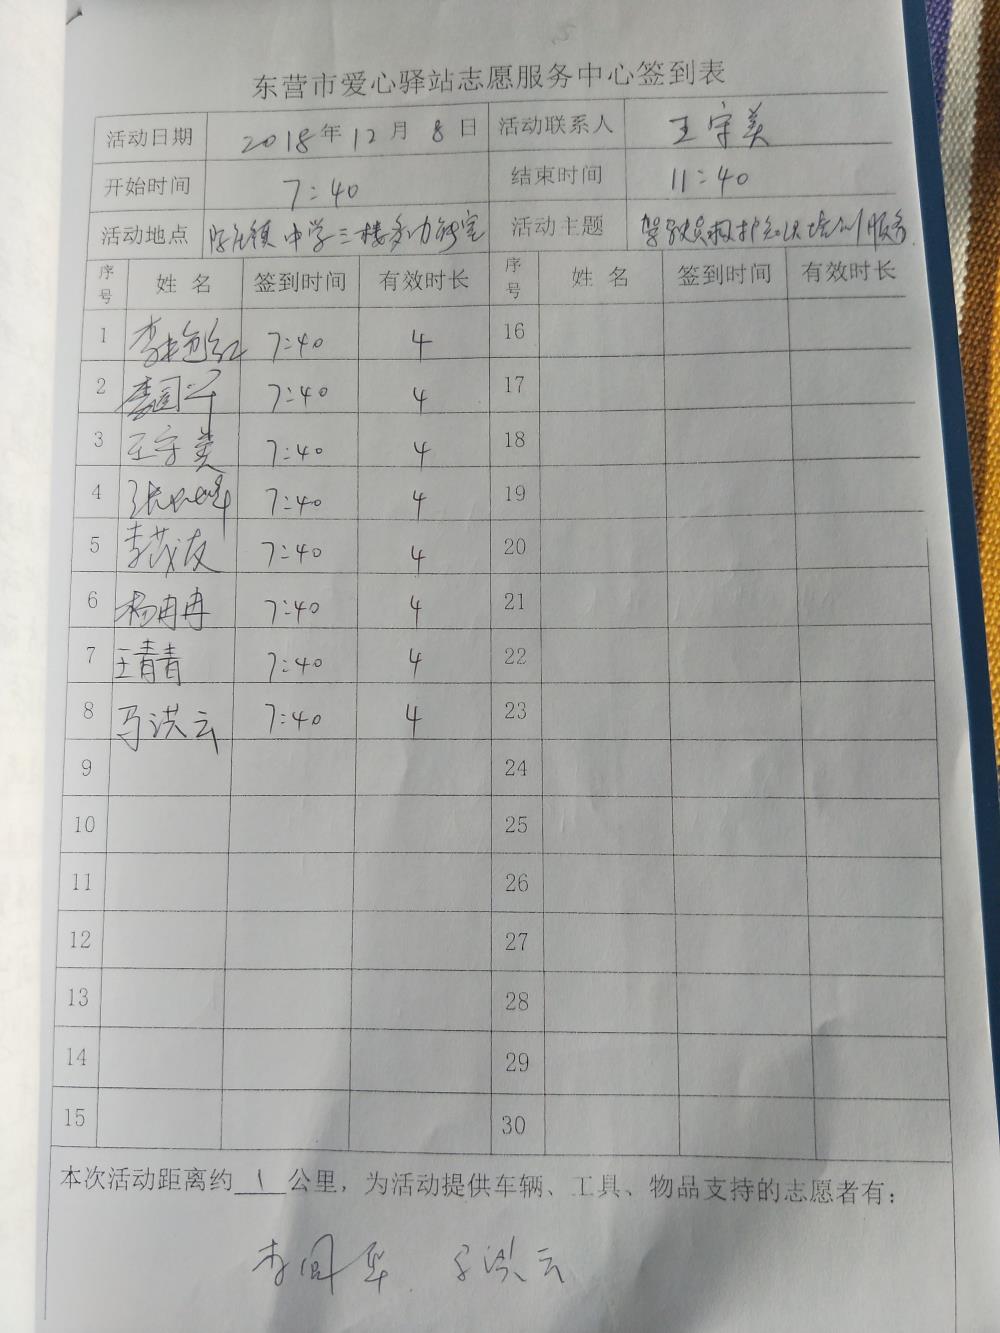 东营市爱心驿站志愿服务中心签到表
活动日期 2018年12月8日 活动联系人 王守美
开始时间 7:40 结束时间 11:40
活动地点 陈庄镇中学三楼多功能室 活动主题 驾驶员救护知识培训服务
序号 姓名 签到时间 有效时长 序号 姓名 签到时间 有效时长
1 7:40 4 16
2 李国华 7:40 4 17
3 王守美 7:40 4 18
4 7:40 4 19
5 李茂友 7:40 4 20
6 杨冉冉 7:40 4 21
7 王青青 7:40 4 22
8 马洪云 7:40 4 23
9 24
10 25
11 26
12 27
13 28
14 29
15 30
本次活动距离约1公里，为活动提供车辆、工具、物品支持的志愿者有：
李国华 马洪云